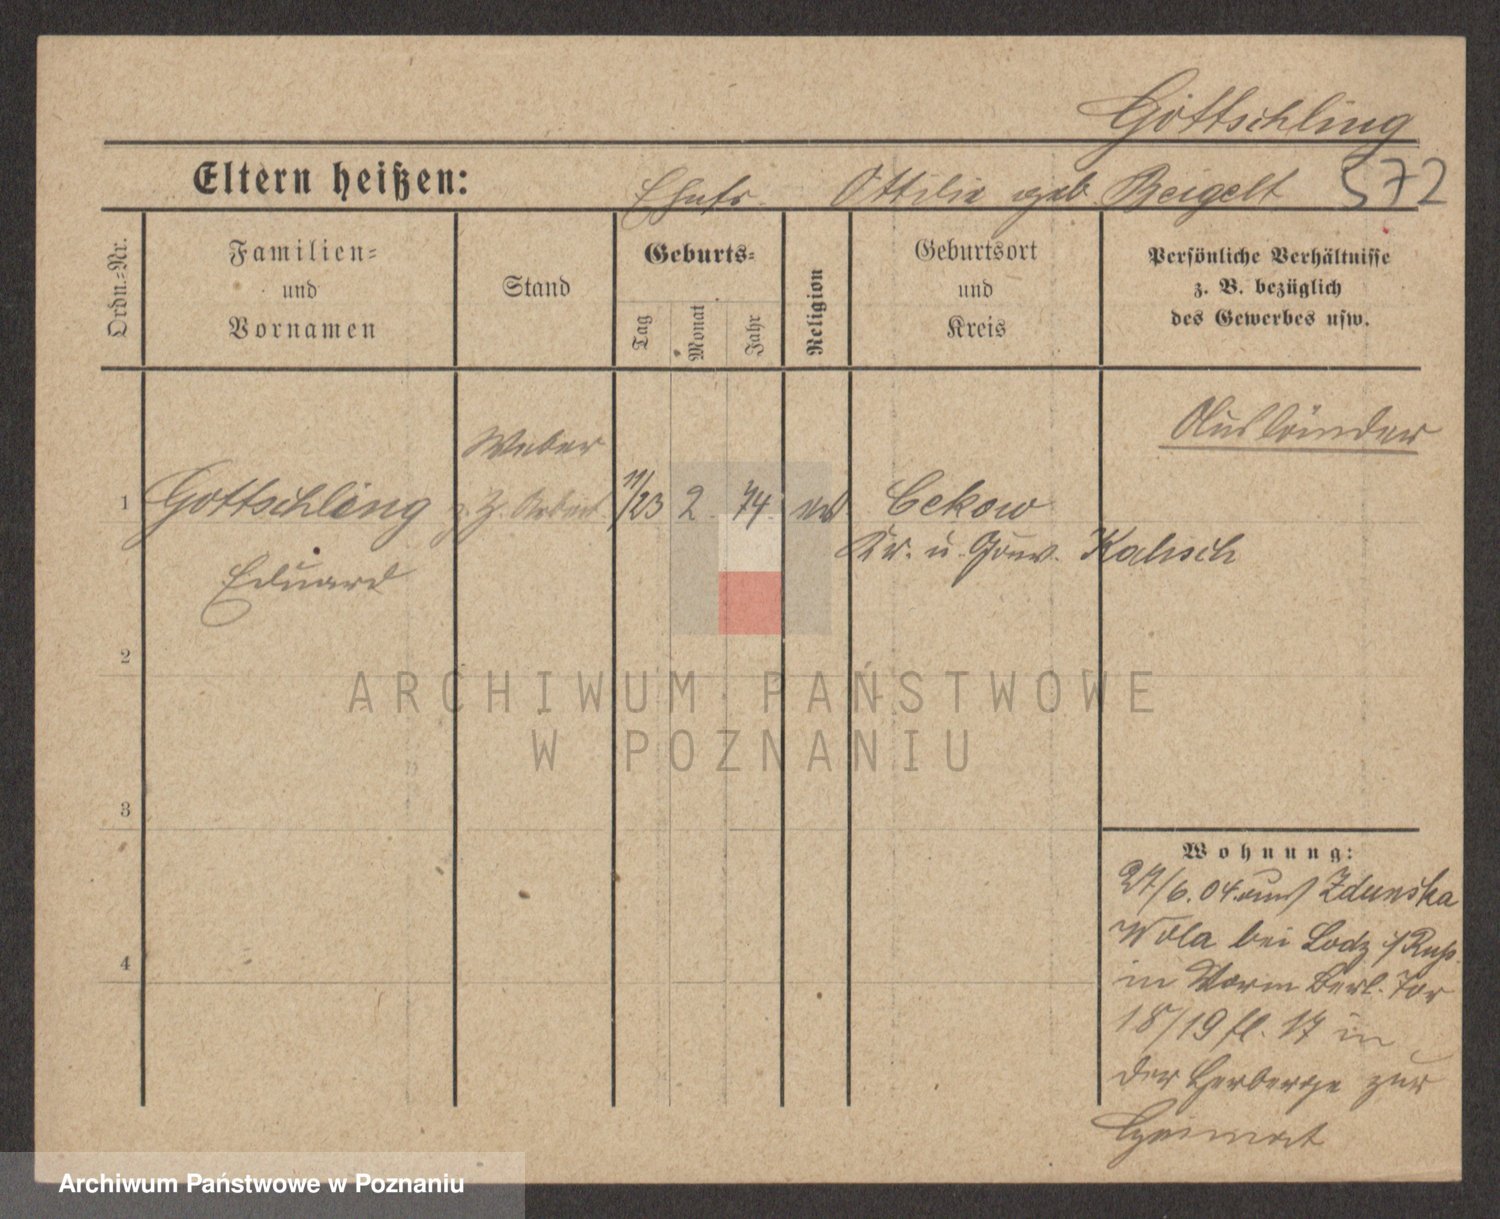 Göttschling
Eltern heißen: Ottilie geb. Beigelt 572
Ordn.-Nr.
Familien-
und
Vornamen
Stand
Geburts-
Tag
Monat
Jahr
Religion
Geburtsort
und
Kreis
Persönliche Verhältnisse
z. B. bezüglich
des Gewerbes usw.
Ausländer
Weber
1 Gottschling z. Z. Arbeit. 11/23 2. 74. ev Cekow
Kr. u. Gouv. Kalisch
Eduard
2
3
4
Wohnung:
27/6. 04. aus Zdunska
Wola bei Lodz i/Russ.
in Berl. Tor
18/19 fl. 17 in
der Herberge zur
Heimat
ARCHIWUM PAŃSTWOWE
W POZNANIU
Archiwum Państwowe w Poznaniu